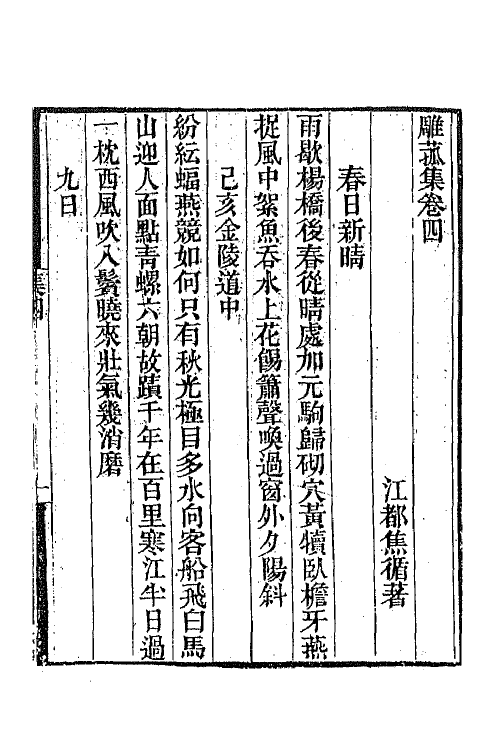 雕菰集卷四
江都焦循著
春日新晴
雨歇楊橋後春從晴處加元駒歸砌穴黃犢臥檐牙燕
捉風中絮魚吞水上花餳簫聲喚過窗外夕陽斜
己亥金陵道中
紛紜蝠燕競如何只有秋光極目多水向客船飛白馬
山迎人面點青螺六朝故蹟千年在百里寒江半日過
一枕西風吹入鬢曉來壯氣幾消磨
九日
集四
一